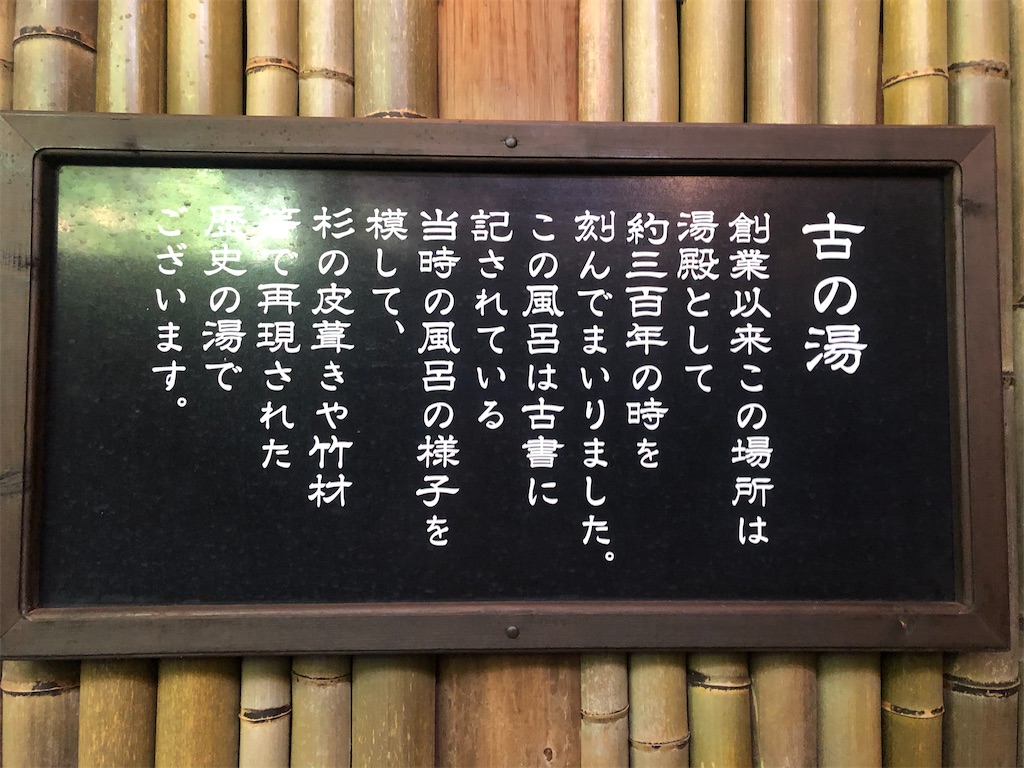 古の湯
創業以来この場所は
湯殿として
約三百年の時を
刻んでまいりました。
この風呂は古書に
記されている
当時の風呂の様子を
模して、
杉の皮葺きや竹材
等で再現された
歴史の湯で
ございます。